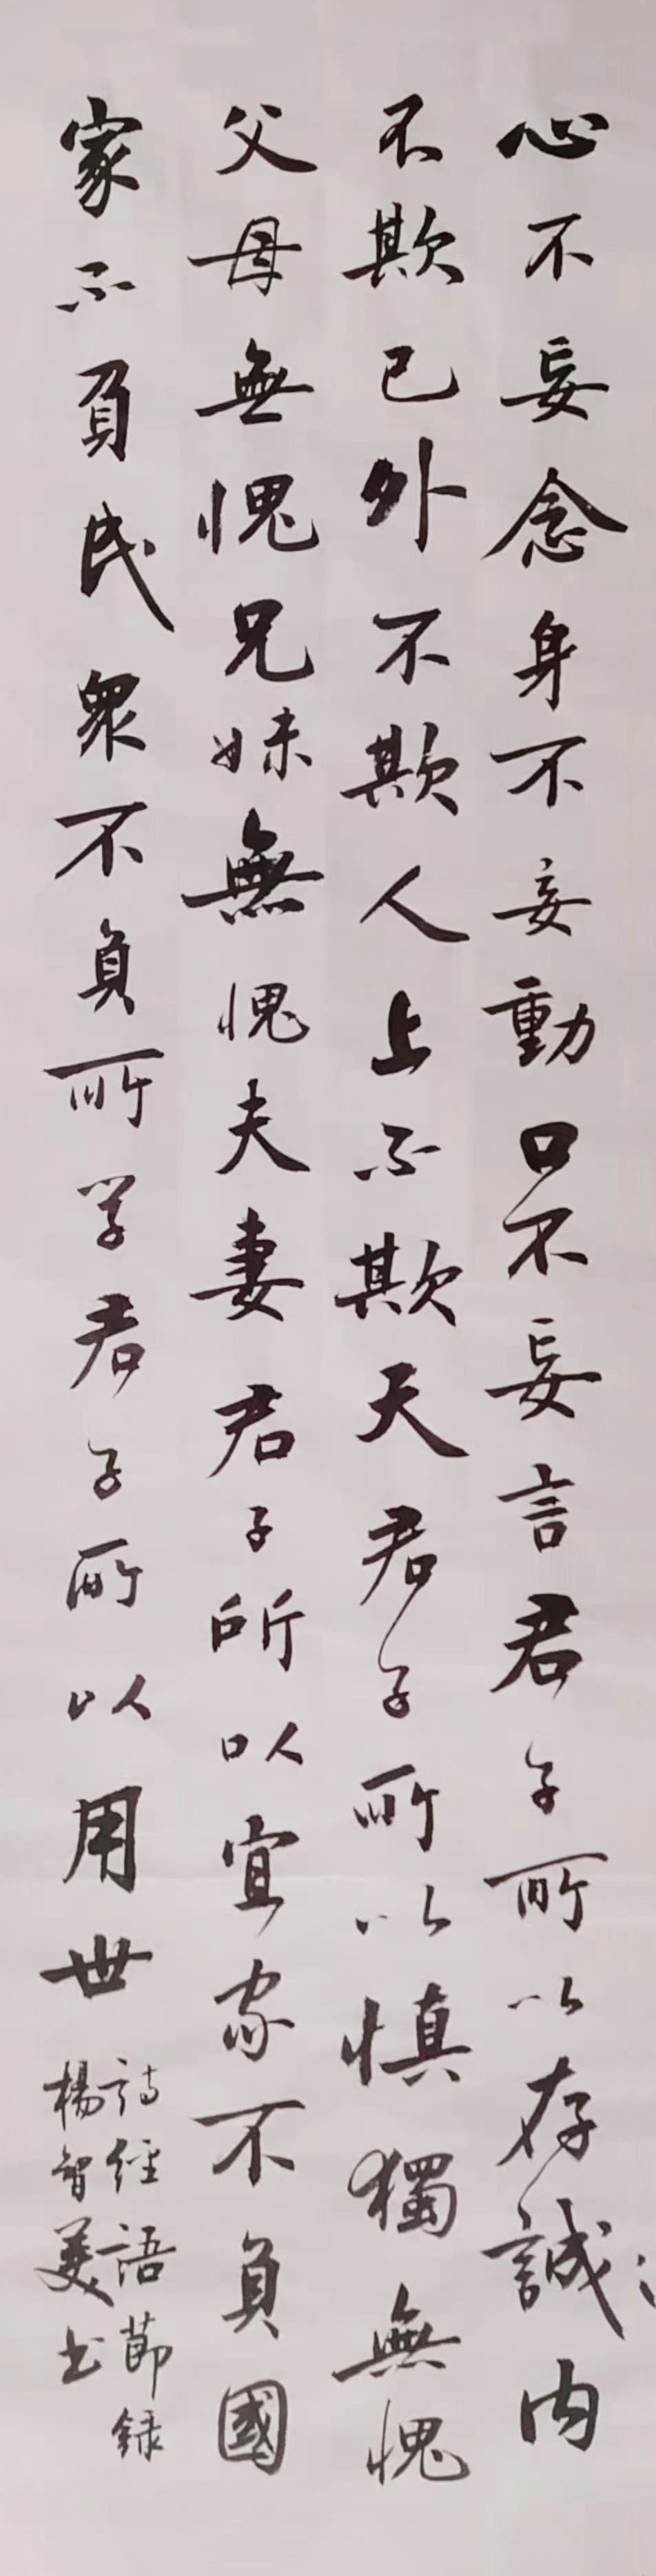 心不妄念身不妄動口不妄言君子所以存誠内
不欺己外不欺人上不欺天君子所以慎獨無愧
父母無愧兄妹無愧夫妻君子所以宜家不負國
家不負民衆不負所学君子所以用世
詩經語節録
楊智美书